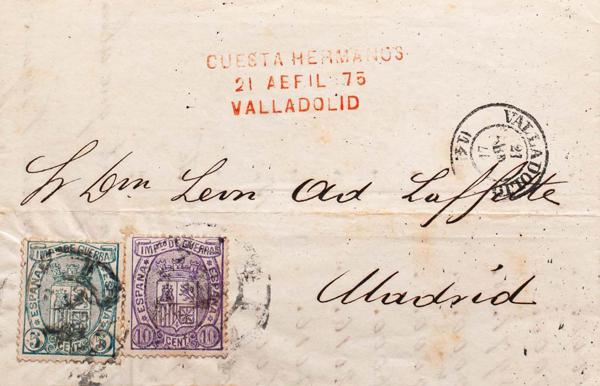 CUESTA HERMANOS
21 ABRIL 75
VALLADOLID
VALLADOLID
21
Sr Dn Leon Ad Laffitte
Madrid
IMPTO DE GUERRA
ESPAÑA
ESPAÑA
5 CENT 5
IMPTO DE GUERRA
ESPAÑA
ESPAÑA
10 CENT. 10